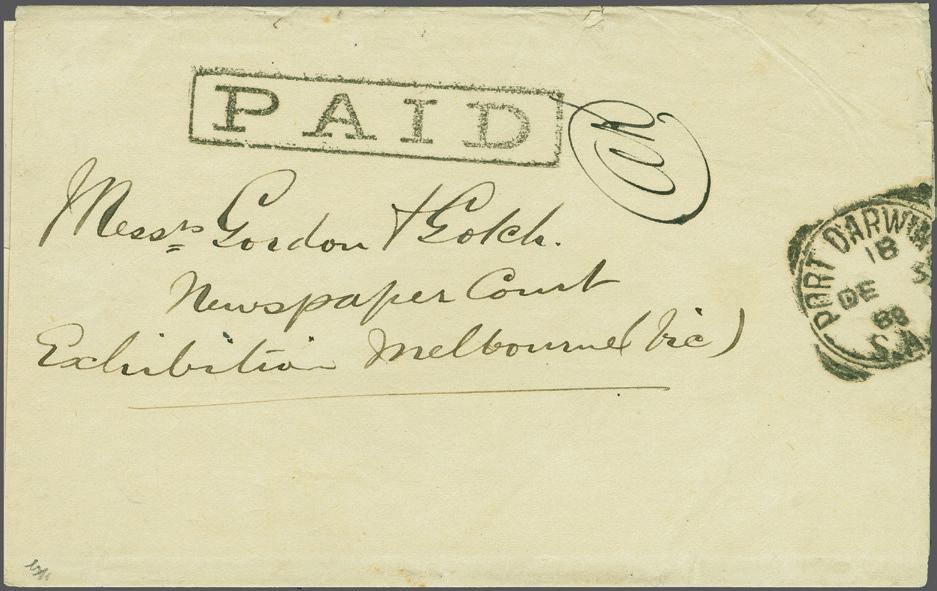 PAID
Messrs Gordon & Gotch.
Newspaper Court
Exhibition Melbourne (Vic)
PORT DARWIN
18
DE
88
S.A